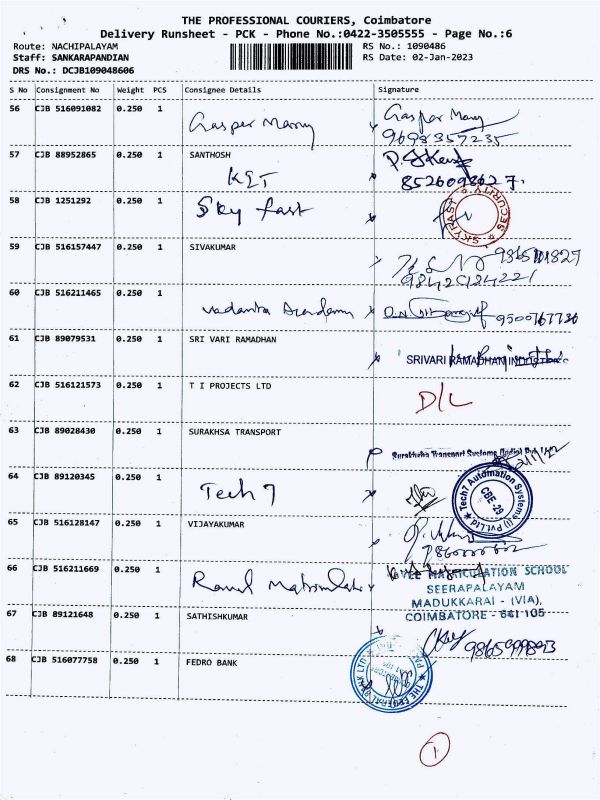 THE PROFESSIONAL COURIERS, Coimbatore
Delivery Runsheet - PCK - Phone No.:0422-3505555 - Page No.:6
Route: NACHIPALAYAM RS No.: 1090486
Staff: SANKARAPANDIAN RS Date: 02-Jan-2023
DRS No.: DCJB109048606
S No Consignment No Weight PCS Consignee Details Signature
56 CJB 516091082 0.250 1 Gasper Marry Gasper Mary
9698357235
57 CJB 88952865 0.250 1 SANTHOSH
KGT 8526098627
58 CJB 1251292 0.250 1 Sky fast SKYFAST SECURITY
59 CJB 516157447 0.250 1 SIVAKUMAR
9842124221
60 CJB 516211465 0.250 1
Vadanta Academy 9500767730
61 CJB 89079531 0.250 1 SRI VARI RAMADHAN
SRIVARI RAMADHAN
62 CJB 516121573 0.250 1 T I PROJECTS LTD D/L
63 CJB 89028430 0.250 1 SURAKHSA TRANSPORT
Surakhsha Transport Systems
64 CJB 89120345 0.250 1
Tech 7 Tech7 Automation Systems (I) Pvt.Ltd
CBE-29
65 CJB 516128147 0.250 1 VIJAYAKUMAR
66 CJB 516211669 0.250 1
MATRICULATION SCHOOL
SEERAPALAYAM
MADUKKARAI - (VIA),
COIMBATORE - 641 105
67 CJB 89121648 0.250 1 SATHISHKUMAR
68 CJB 516077758 0.250 1 FEDRO BANK THE FEDERAL BANK LTD
1